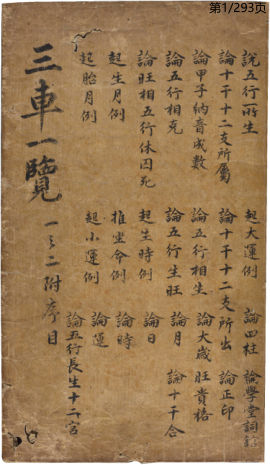 第1/293页
說五行所生　起大運例　論四柱
論十干十二支所屬　論十干十二支所出　論學堂詞舘
論甲子納音成數　論五行相生　論大歲　論正印
論五行相克　論五行生旺　論月　旺貴格
論旺相五行休囚死　起生時例　論日　論十干合
起生月例　推坐命例　論時
起胎月例　起小運例　論運
論五行長生十二宮
三車一覽　一之二附序目